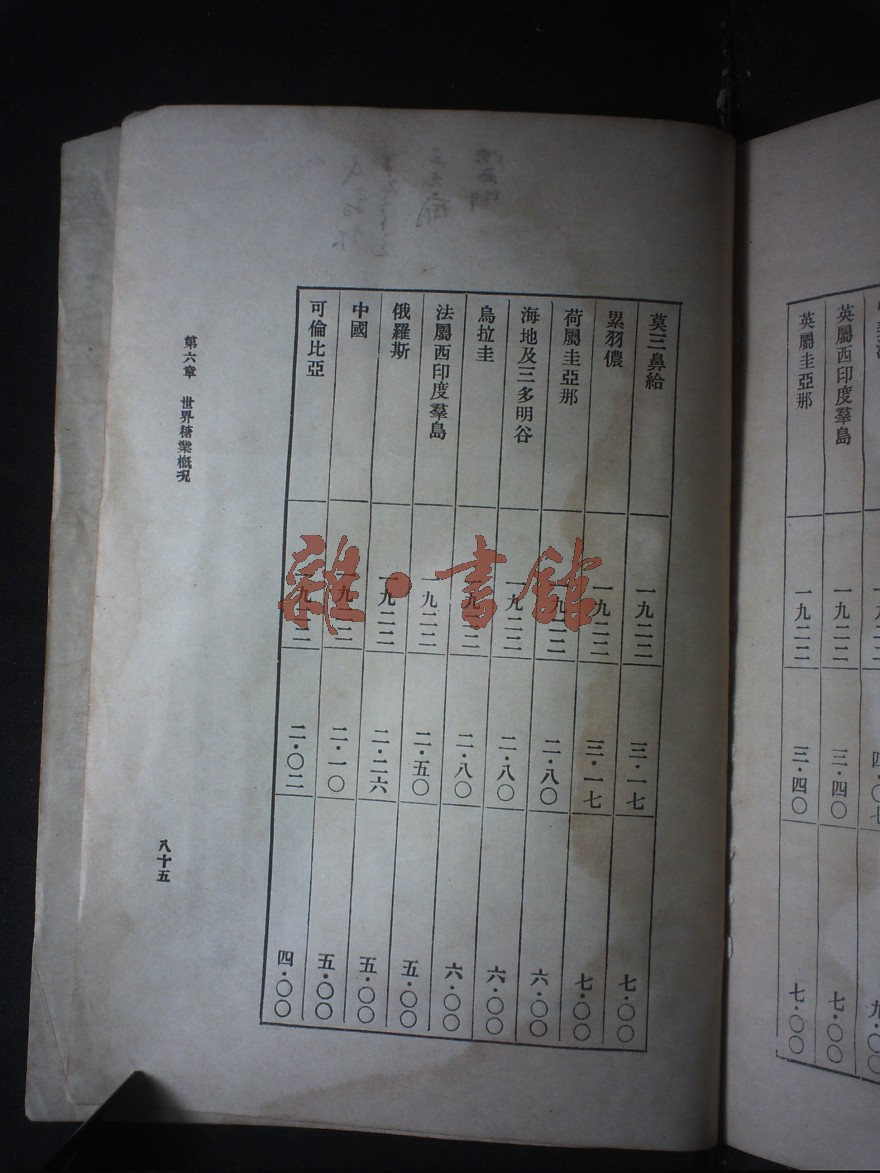 英屬西印度羣島 一九二二 三·四〇 七·〇〇
英屬圭亞那 一九二二 三·四〇 七·〇〇
莫三鼻給 一九二二 三·一七 七·〇〇
累羽儂 一九二二 三·一七 七·〇〇
荷屬圭亞那 一九二二 二·八〇 六·〇〇
海地及三多明谷 一九二二 二·八〇 六·〇〇
烏拉圭 一九二二 二·八〇 六·〇〇
法屬西印度羣島 一九二二 二·五〇 五·〇〇
俄羅斯 一九二二 二·二六 五·〇〇
中國 一九二二 二·一〇 五·〇〇
可倫比亞 一九二二 二·〇二 四·〇〇
第六章 世界糖業概況
八十五
雜·書館